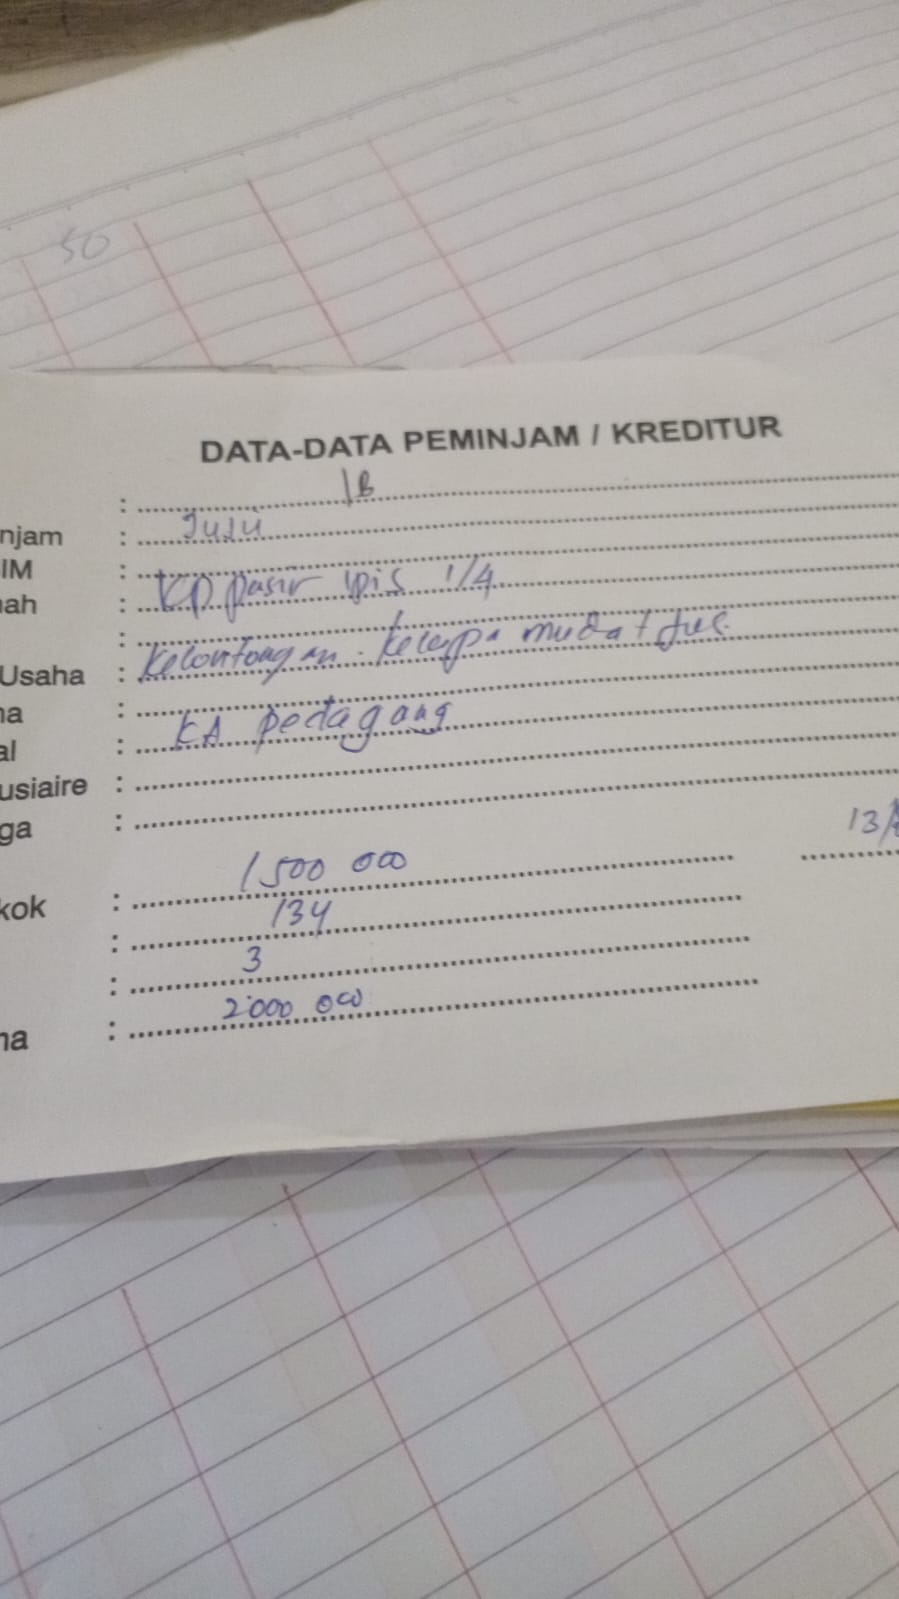 50
DATA-DATA PEMINJAM / KREDITUR
: 1B
njam : Juju
IM :
ah : KP pasir ipis 1/4
:
Usaha : Kelontongan. Kelapa muda + Jus.
na :
al : KA pedagang
usiaire :
ga :
13/
kok : 1500 000
: 134
: 3
na : 2000 000